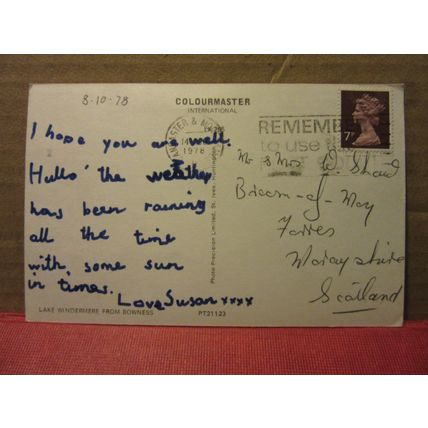 8-10-78
COLOURMASTER
INTERNATIONAL
I hope you are well.
Hullo the weather
has been raining
all the time
with, some sun
in times.
Love Susan xxxx
LAKE WINDERMERE FROM BOWNESS
PT21123
Photo Precision Limited, St. Ives, Huntingdon
1978
REMEMBE
to use the
7P
Mr & Mrs D. Shaw
Forres
Morayshire
Scotland